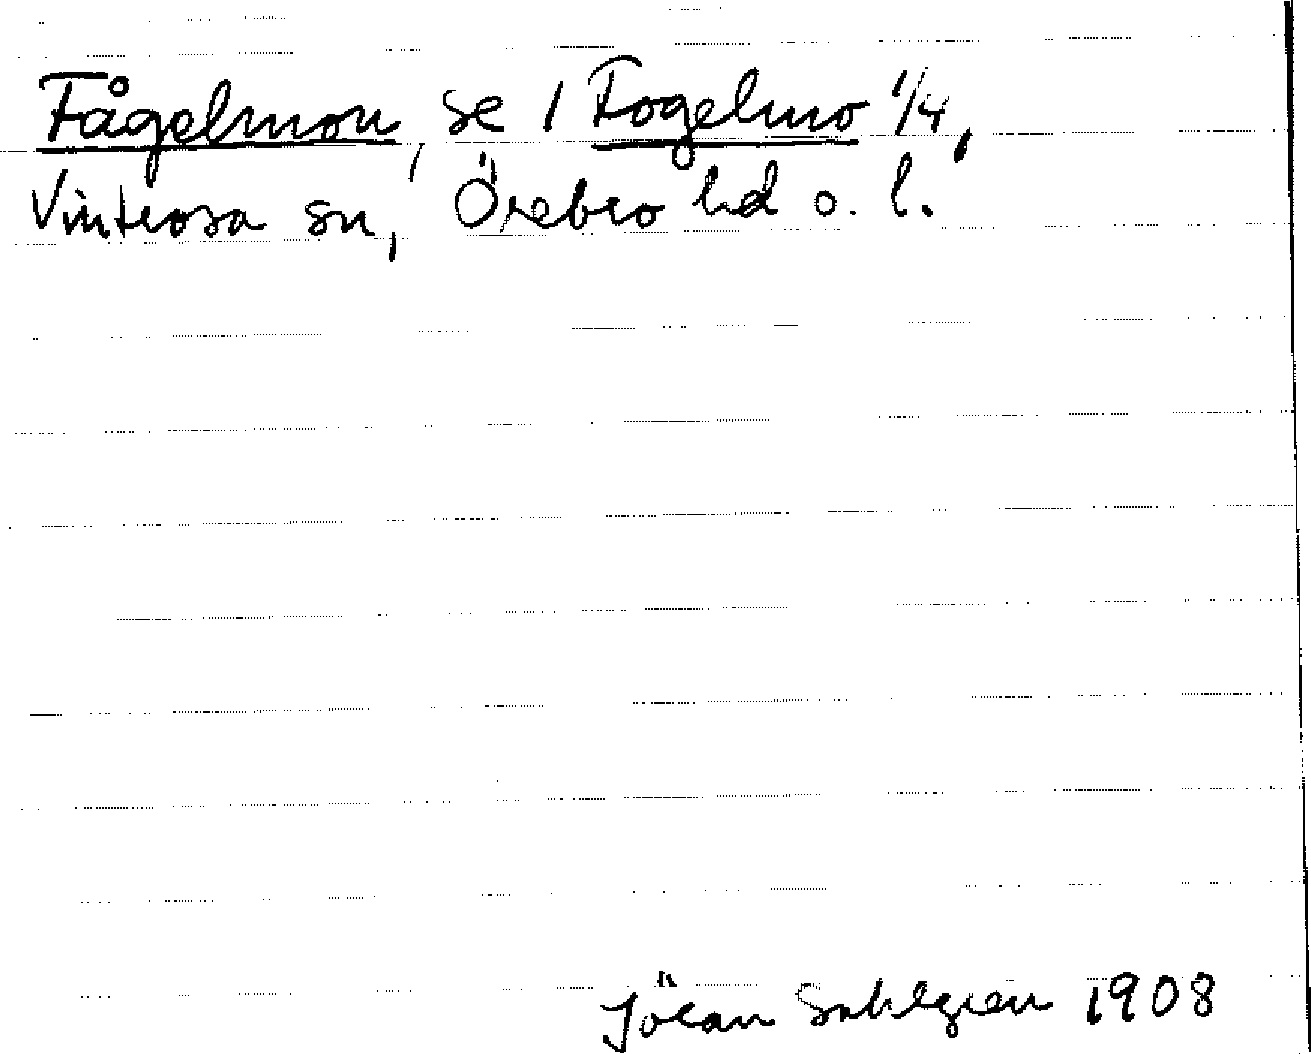 Fågelmon, se 1 Fogelmo 1/4,
Vintrosa sn, Örebro hd o. l.
Jöran Sahlgren 1908